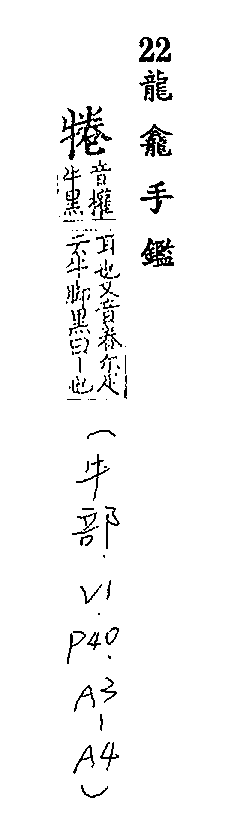 22龍龕手鑑
犈音權牛黑
耳也又音卷尔疋
云牛脚黑曰丨也
(牛部.V1.P40.A3-A4)